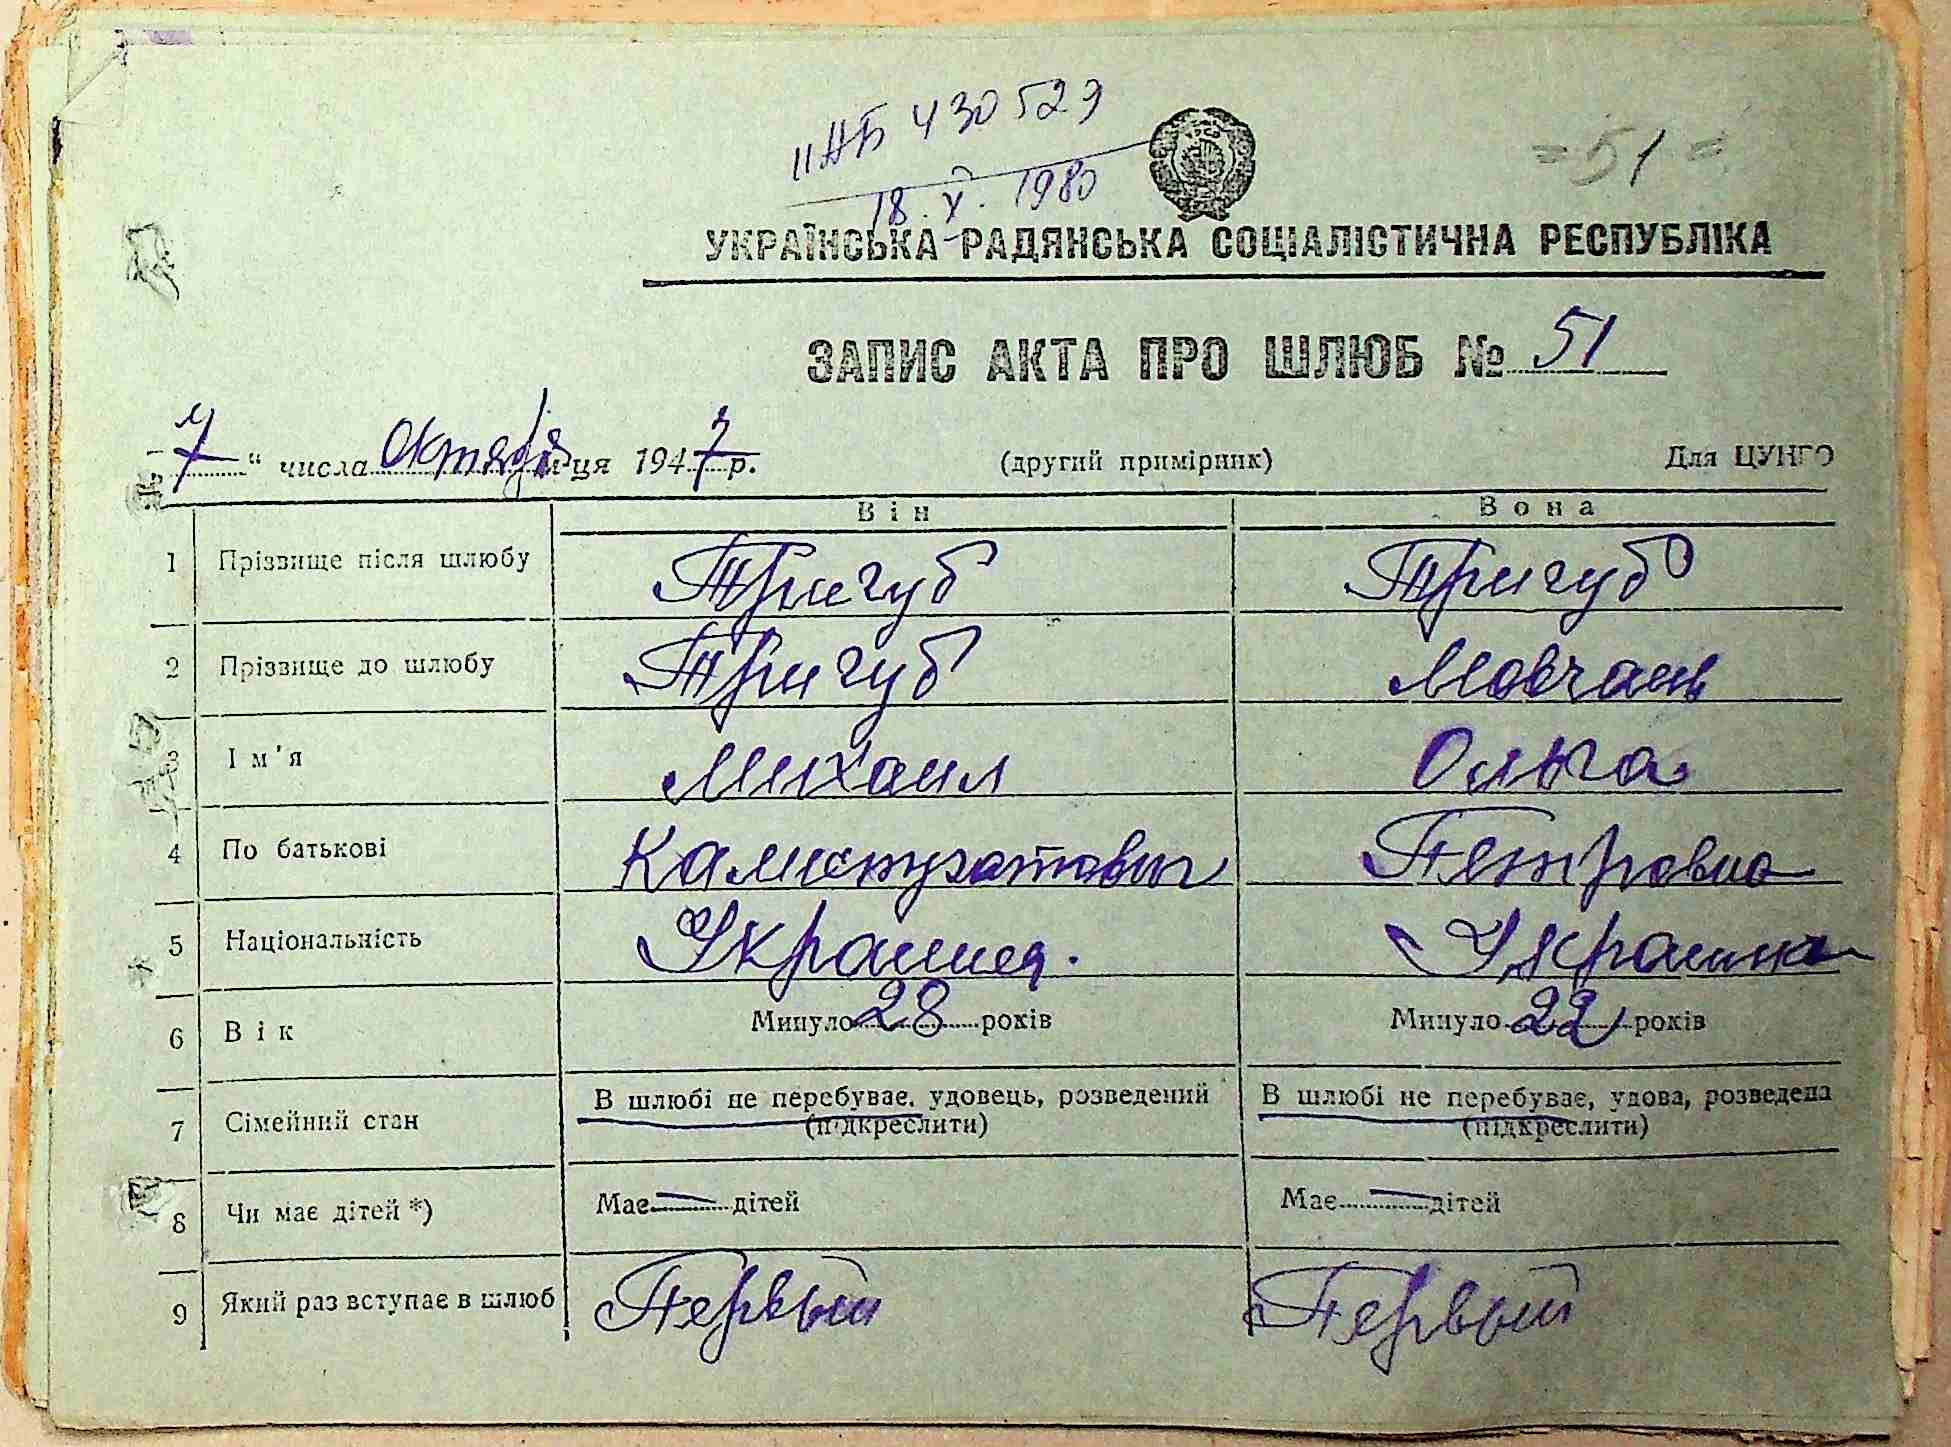 ІІ НБ 430529
18.X.1980
= 51 =
УКРАЇНСЬКА РАДЯНСЬКА СОЦІАЛІСТИЧНА РЕСПУБЛІКА
ЗАПИС АКТА ПРО ШЛЮБ № 51
7 " числа Октября ця 1947 р. (другий примірник) Для ЦУНГО
Він Вона
1 Прізвище після шлюбу Тригуб Тригуб
2 Прізвище до шлюбу Тригуб Мовчань
3 Ім'я Михаил Ольга
4 По батькові Калистратович Петровна
5 Національність Украинец. Украинка
6 Вік Минуло 28 років Минуло 22 років
7 Сімейний стан В шлюбі не перебуває, удовець, розведений В шлюбі не перебуває, удова, розведена
(підкреслити) (підкреслити)
8 Чи має дітей *) Має — дітей Має — дітей
9 Який раз вступає в шлюб Первый Первый